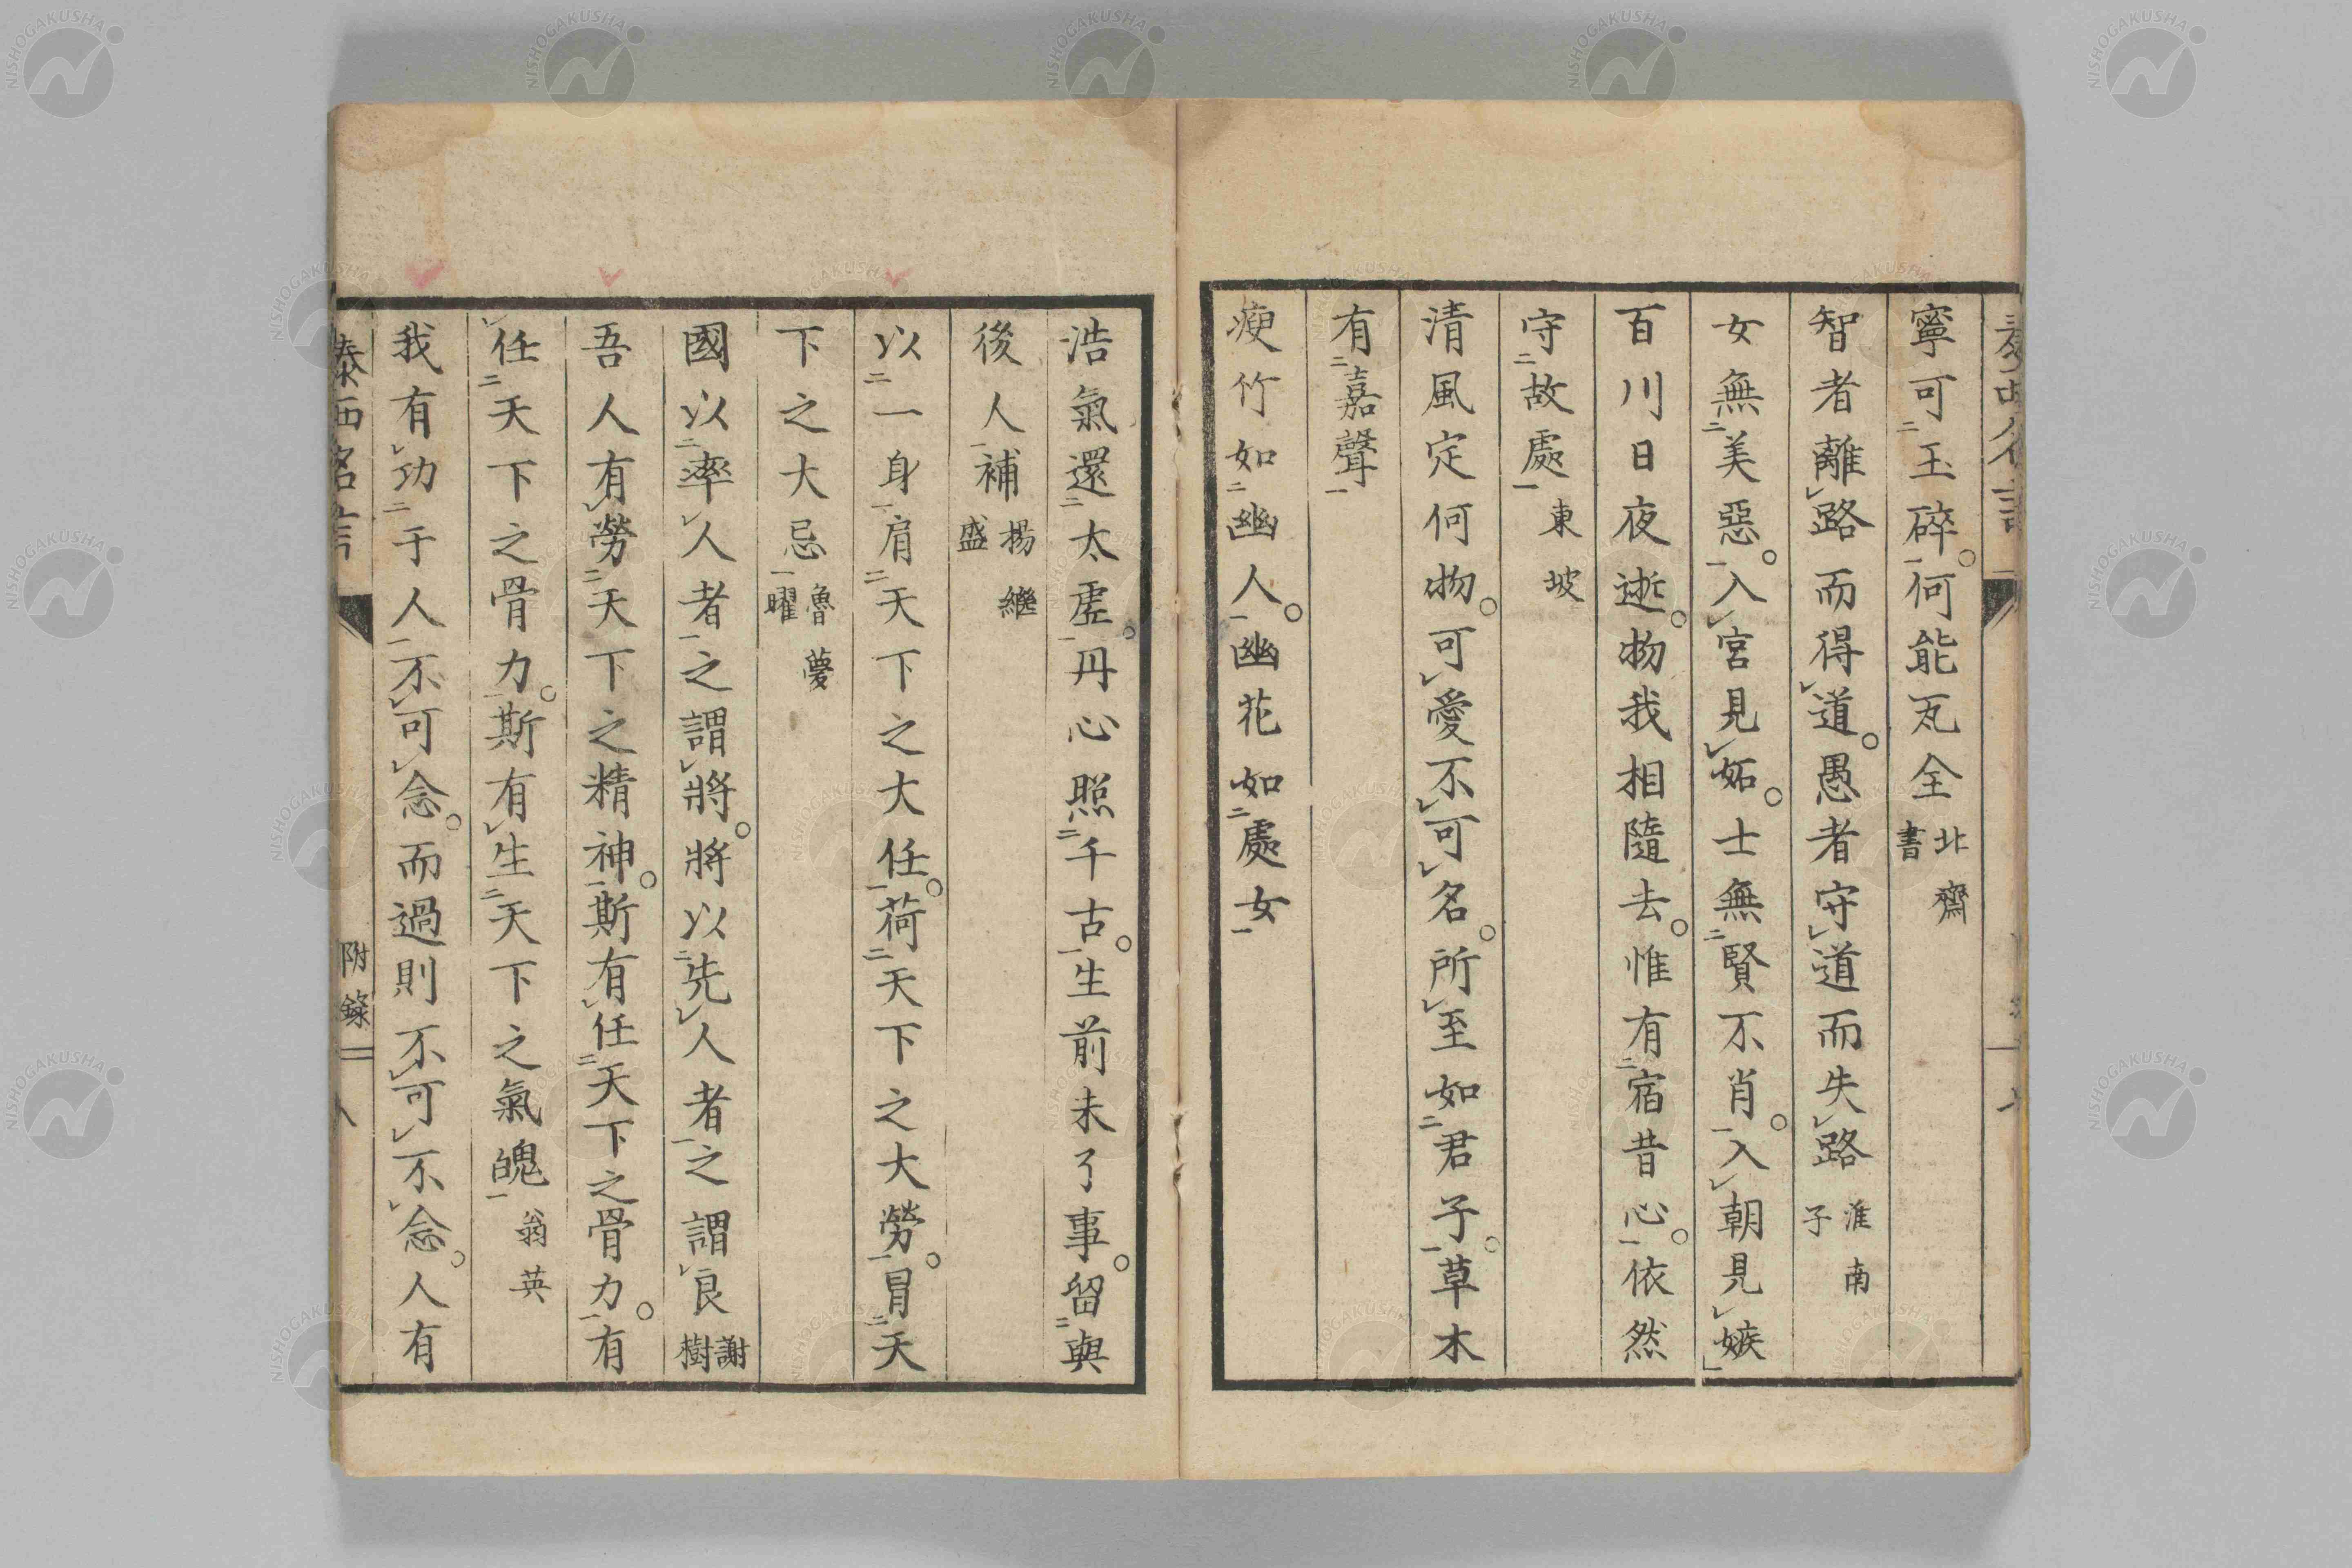 寧可玉碎。何能瓦全 北齊書
智者離路而得道。愚者守道而失路 淮南子
女無美惡。入宮見妬。士無賢不肖。入朝見嫉
百川日夜逝。物我相隨去。惟有宿昔心。依然
守故處 東坡
清風定何物。可愛不可名。所至如君子。草木
有嘉聲
瘦竹如幽人。幽花如處女
浩氣還太虛。丹心照千古。生前未了事。留與
後人補 楊繼盛
以一身肩天下之大任。荷天下之大勞。冒天
下之大忌 魯夢曜
國以率人者之謂將。將以先人者之謂良 謝樹
吾人有勞天下之精神。斯有任天下之骨力。有
任天下之骨力。斯有生天下之氣魄 翁英
我有功于人不可念。而過則不可不念。人有
泰西名言 附錄 八
NISHOGAKUSHA